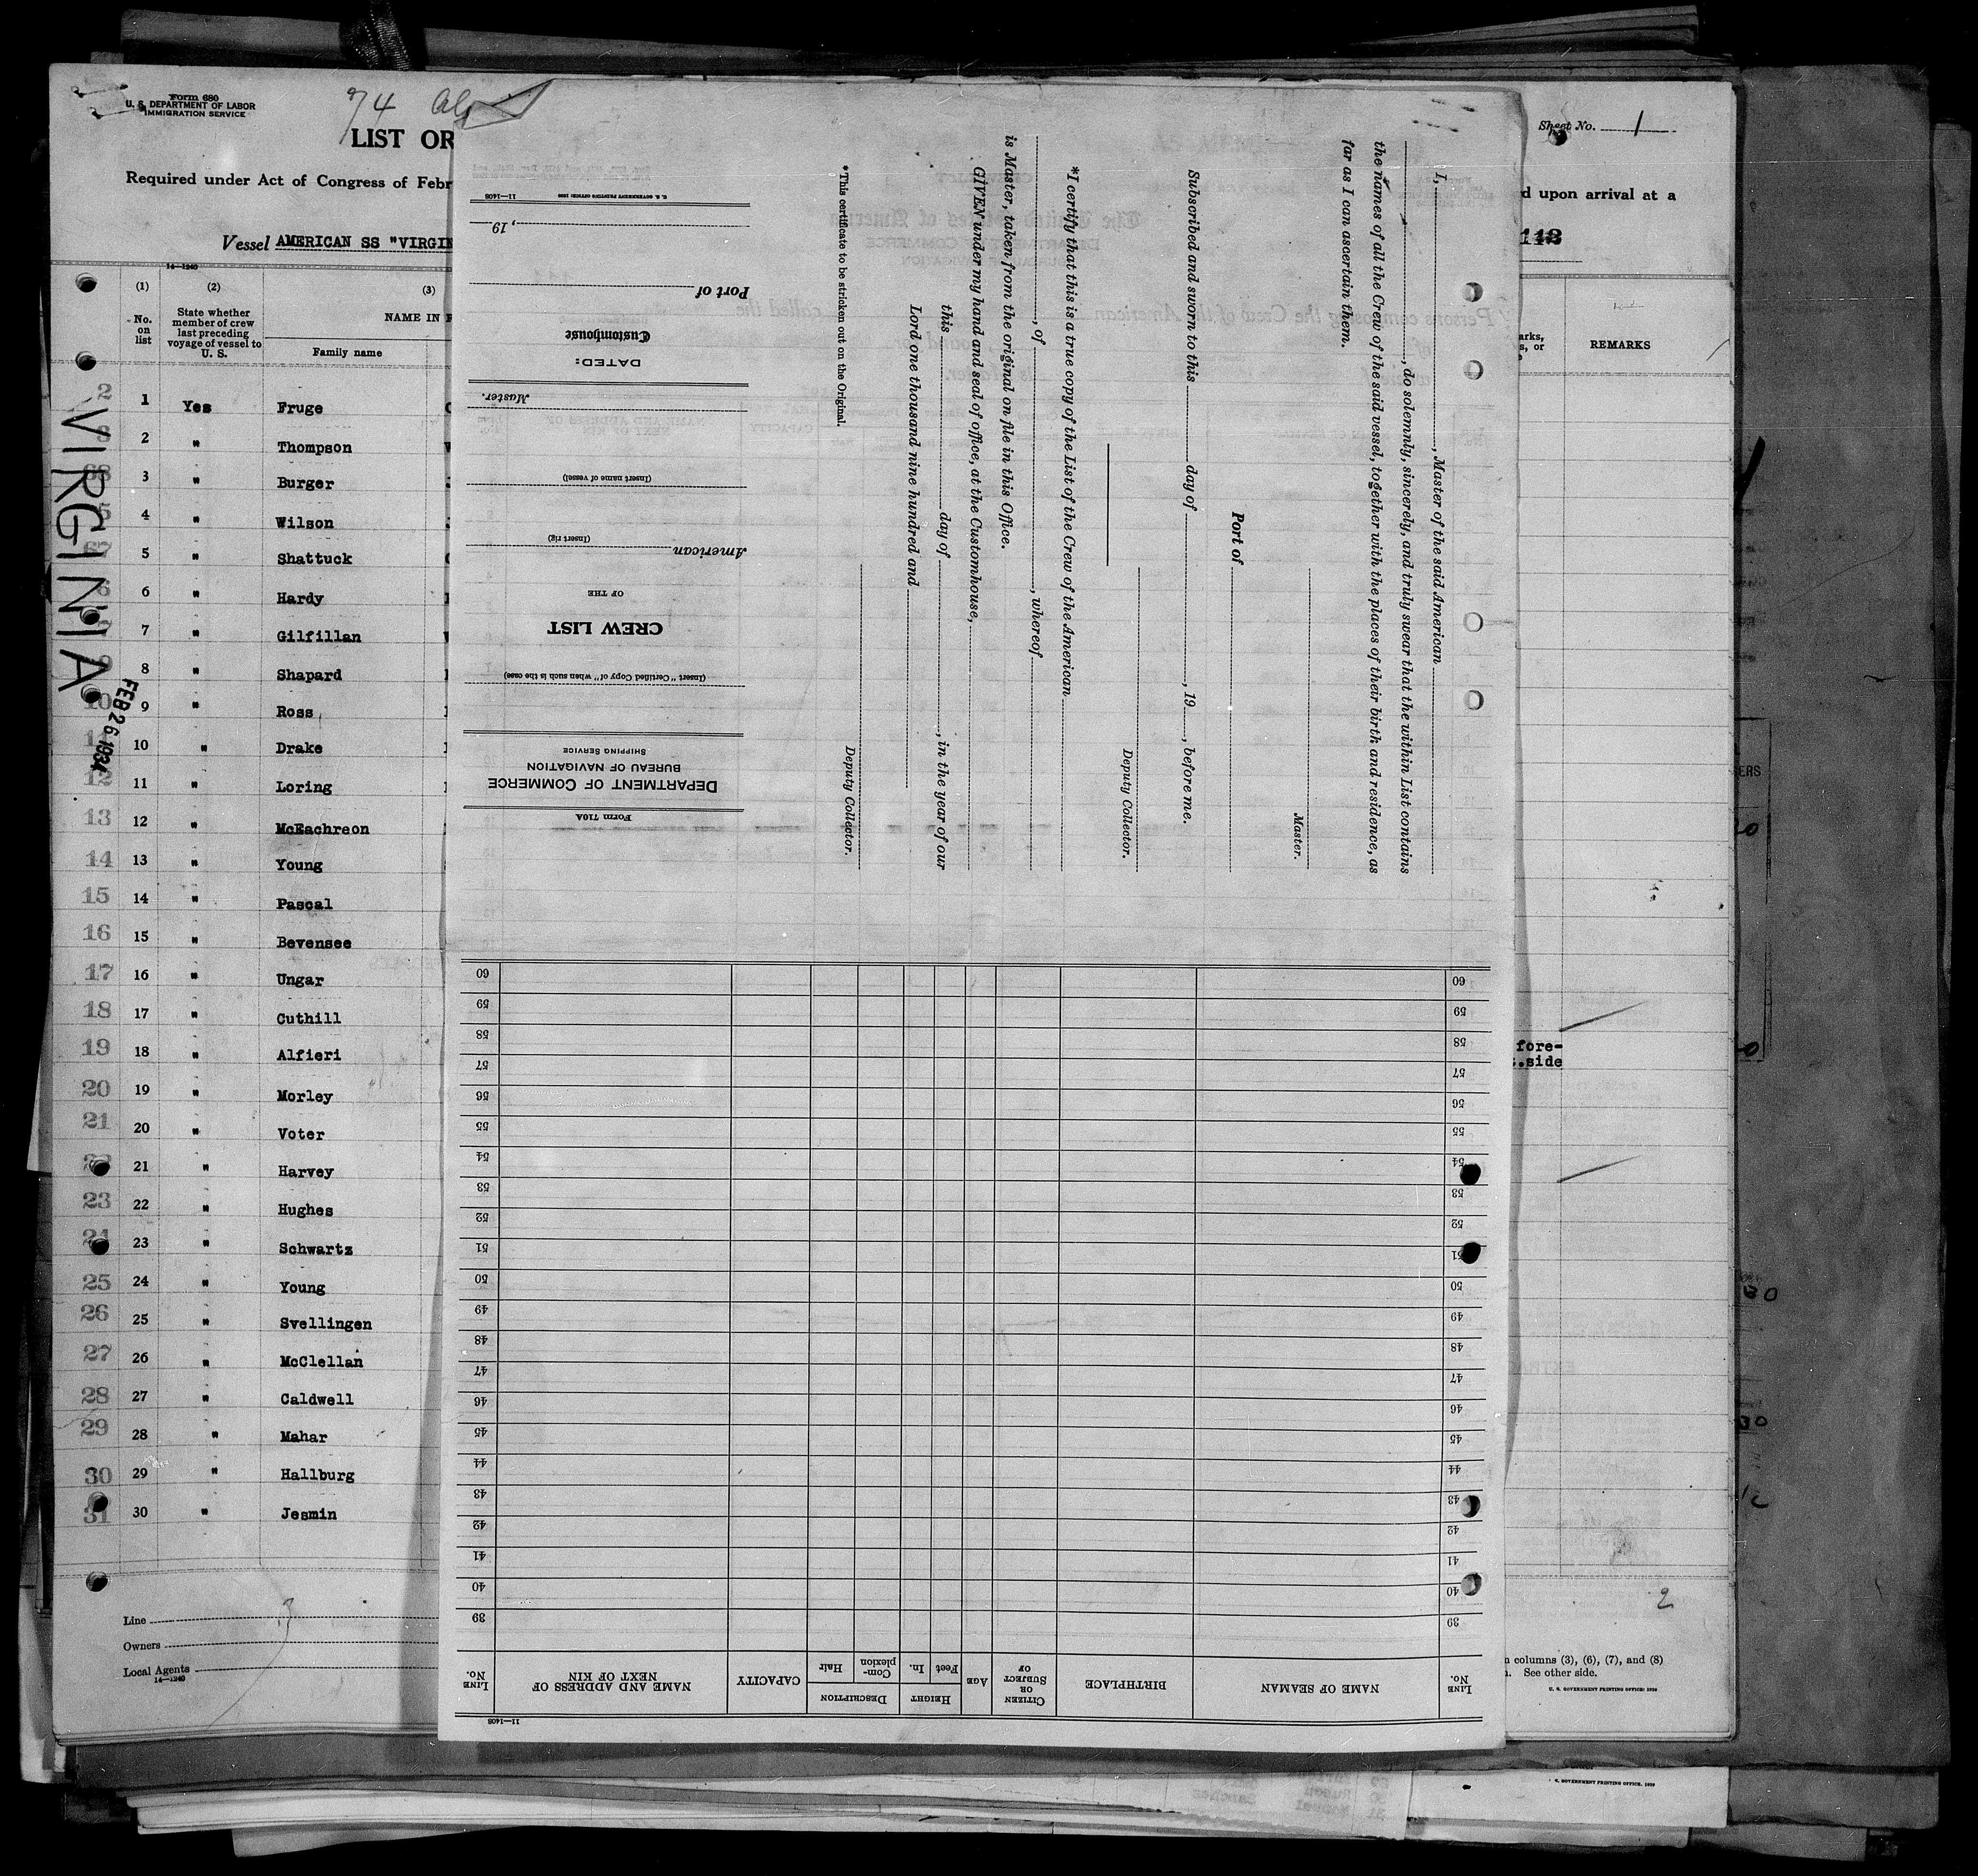 Form 680
U. S. DEPARTMENT OF LABOR
IMMIGRATION SERVICE
74
LIST OR
Required under Act of Congress of Febr
Vessel AMERICAN SS "VIRGIN
14—1240
(1) (2) (3)
No. on list
State whether member of crew last preceding voyage of vessel to U. S.
NAME IN F
Family name
2 1 Yes Fruge
3 2 " Thompson
68 3 " Burger
5 4 " Wilson
67 5 " Shattuck
6 6 " Hardy
7 7 " Gilfillan
9 8 " Shapard
10 9 " Ross
11 10 " Drake
12 11 " Loring
13 12 " McEachreon
14 13 " Young
15 14 " Pascal
16 15 " Bevensee
17 16 " Ungar
18 17 " Cuthill
19 18 " Alfieri
20 19 " Morley
21 20 " Voter
22 21 " Harvey
23 22 " Hughes
24 23 " Schwartz
25 24 " Young
26 25 " Svellingen
27 26 " McClellan
28 27 " Caldwell
29 28 " Mahar
30 29 " Hallburg
31 30 " Jesmin
VIRGINIA
FEB 26 1934
Line
Owners
Local Agents
14—1240
3
I, , Master of the said American
, do solemnly, sincerely, and truly swear that the within List contains
the names of all the Crew of the said vessel, together with the places of their birth and residence, as
far as I can ascertain them.
Master.
Port of
Subscribed and sworn to this day of , 19 , before me.
Deputy Collector.
*I certify that this is a true copy of the List of the Crew of the American
, of , whereof
is Master, taken from the original on file in this Office.
GIVEN under my hand and seal of office, at the Customhouse,
this day of , in the year of our
Lord one thousand nine hundred and
Deputy Collector.
*This certificate to be stricken out on the Original.
Form 710A
DEPARTMENT OF COMMERCE
BUREAU OF NAVIGATION
SHIPPING SERVICE
(Insert "Certified Copy of" when such is the case)
CREW LIST
OF THE
American
(Insert rig)
(Insert name of vessel)
Master.
DATED:
Customhouse
Port of
, 19
11—1408 U. S. GOVERNMENT PRINTING OFFICE
11—1408
LINE No.
NAME OF SEAMAN
BIRTHPLACE
CITIZEN OR SUBJECT OF
AGE
HEIGHT
Feet In.
DESCRIPTION
Complexion Hair
CAPACITY
NAME AND ADDRESS OF NEXT OF KIN
LINE No.
39 39
40 40
41 41
42 42
43 43
44 44
45 45
46 46
47 47
48 48
49 49
50 50
51 51
52 52
53 53
54 54
55 55
56 56
57 57
58 58
59 59
60 60
Sheet No. 1
d upon arrival at a
arks,
s, or
REMARKS
fore-
.side
2
n columns (3), (6), (7), and (8)
See other side.
U. S. GOVERNMENT PRINTING OFFICE
GOVERNMENT PRINTING OFFICE